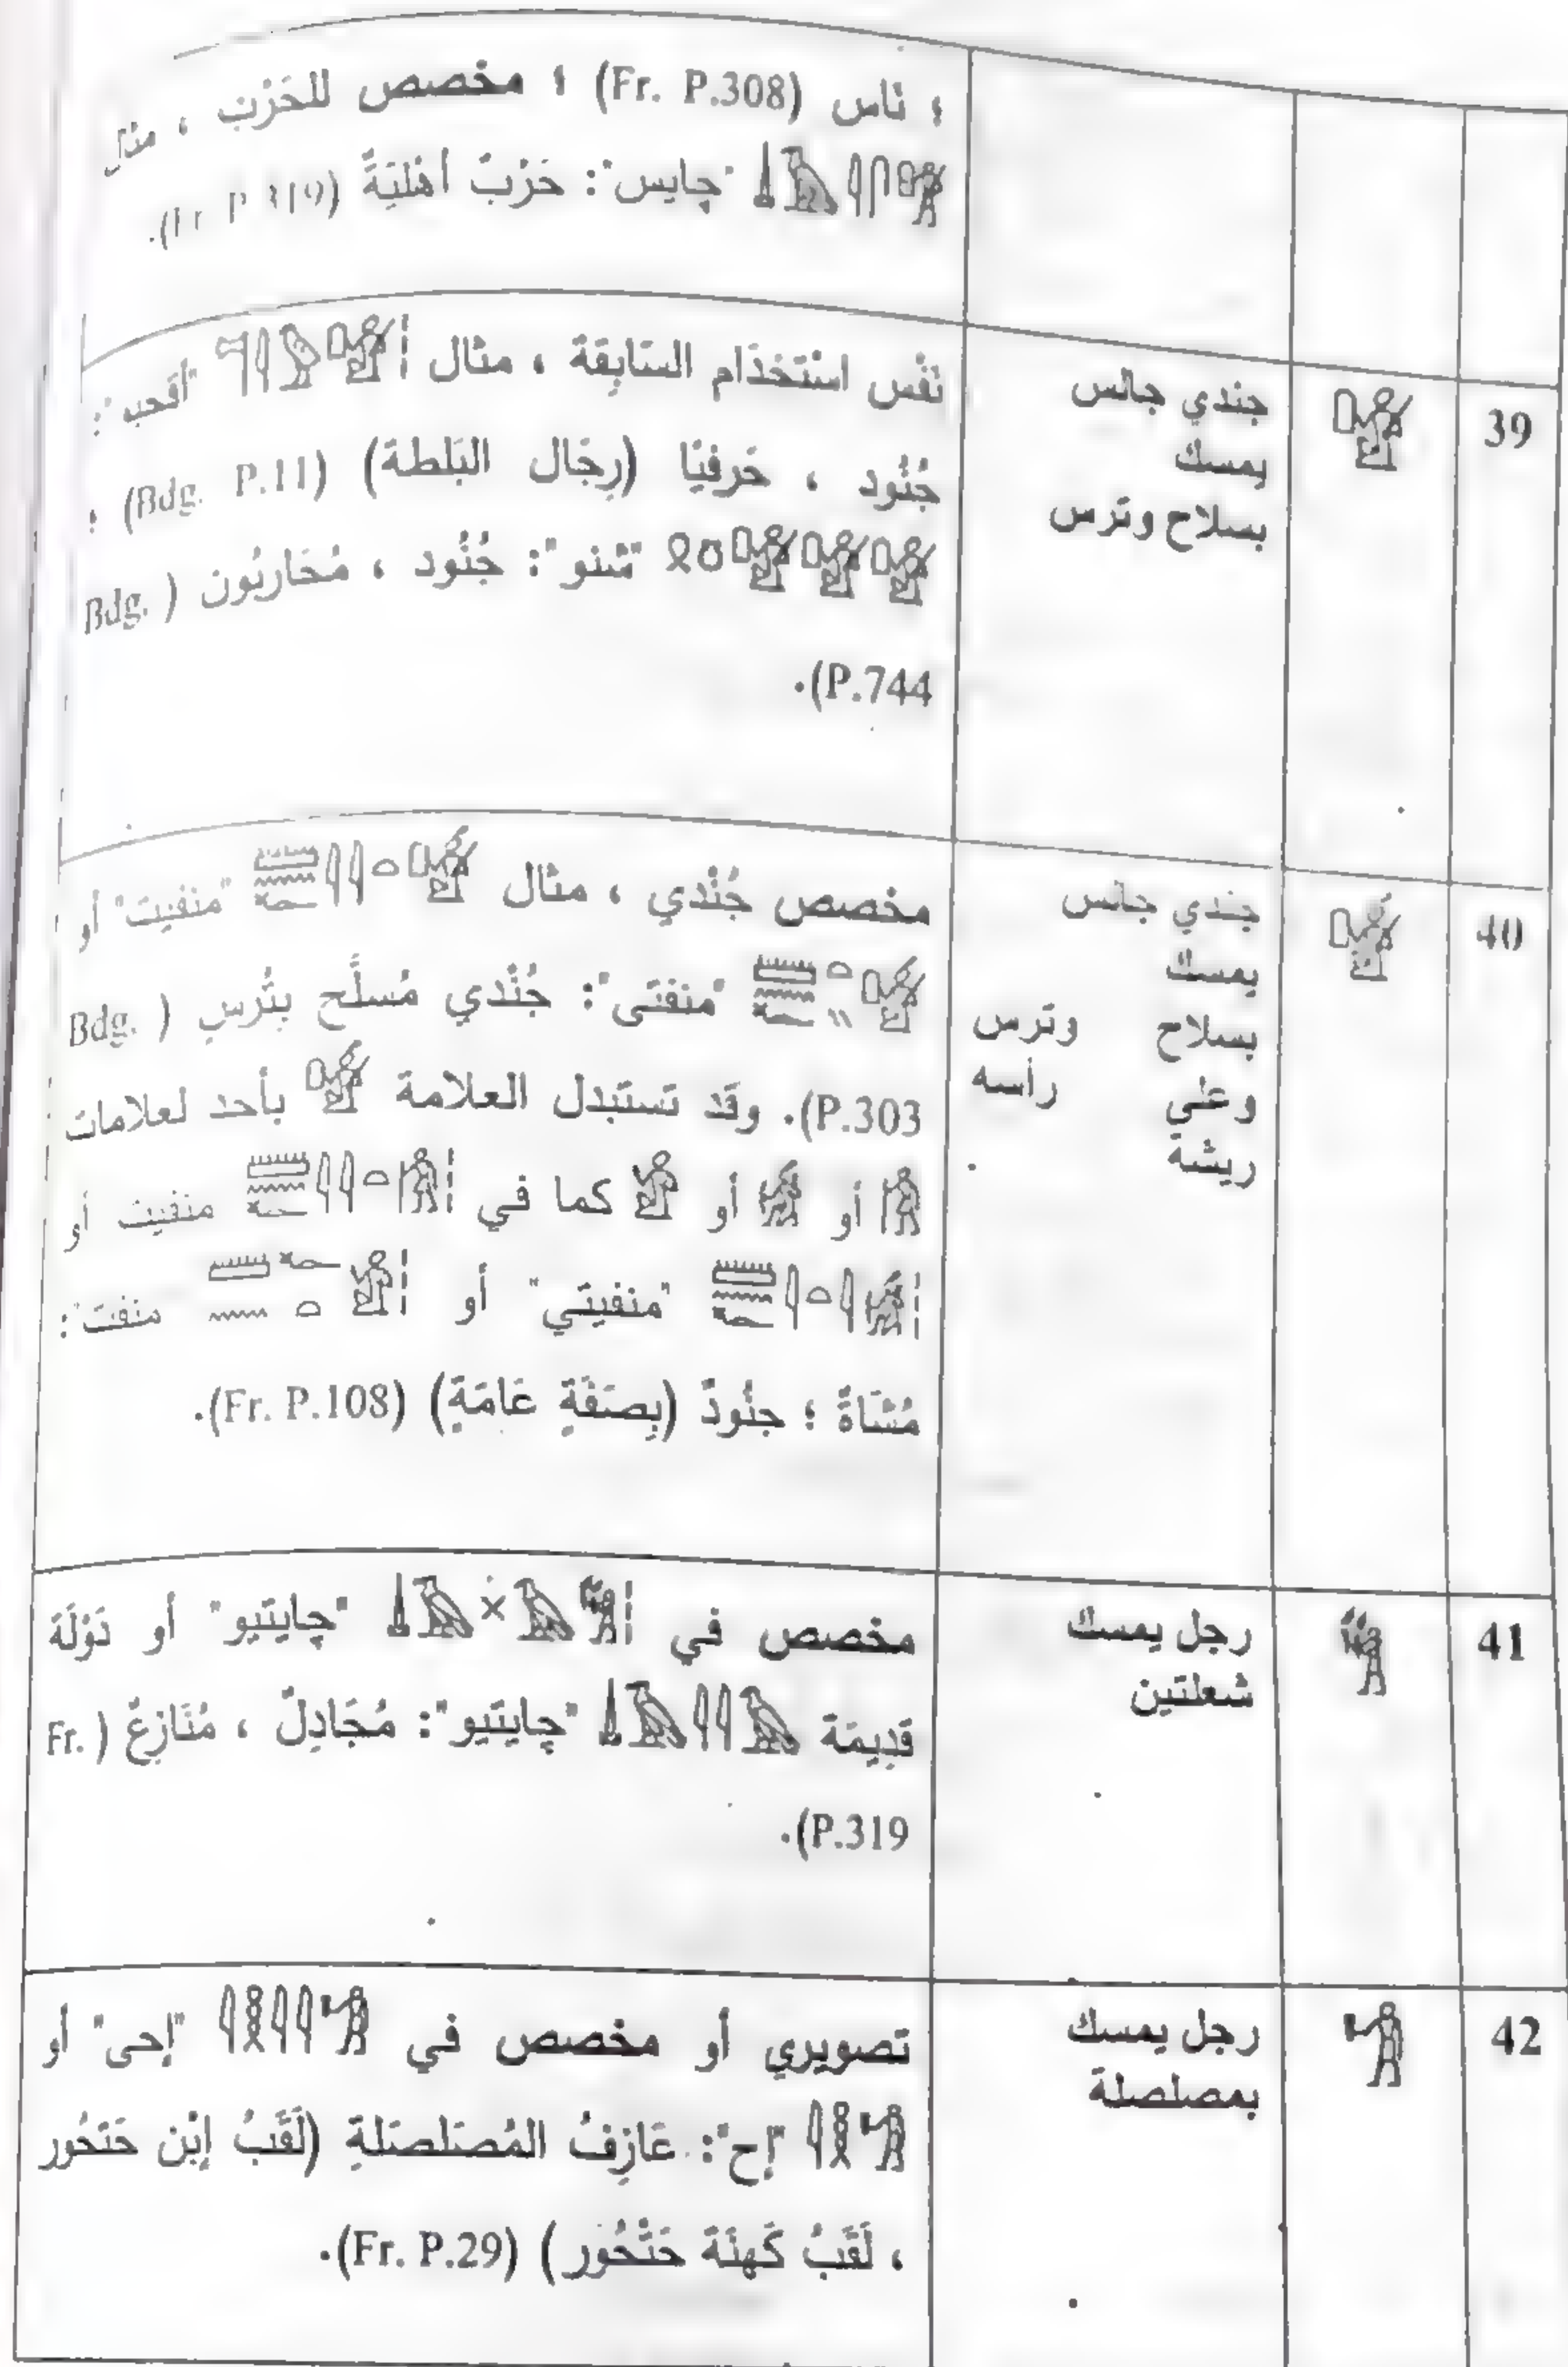 ؛ ناس (Fr. P.308) ؛ مخصص للحَرْب ، مثال
"چايس": حَرْبٌ أهْلِيَةٌ (Fr. P.319).
39
جندي جالس
يمسك
بسلاح وترس
نَفْس اسْتخدَام السَابِقة ، مثال "أقحبو":
جُنُود ، حَرفيًا (رِجَال البَلطة) (Bdg. P.11) ؛
"شنو": جُنُود ، مُحَاربُون (Bdg.
P.744).
40
جندي جالس
يمسك
بسلاح وترس
وعلى رأسه
ريشة
مخصص جُنْدي ، مثال "منفيت" أو
"منفتى": جُنْدي مُسلَّح بِتُرسٍ (Bdg.
P.303). وقد تستبدل العلامة بأحد لعلامات
أو أو كما في منفيت أو
"منفيتي" أو منفت":
مُشَاةً ؛ جنُودٌ (بِصَفَةٍ عَامَةٍ) (Fr. P.108).
41
رجل يمسك
شعلتين
مخصص في "چايتيو" أو دَوْلَة
قدِيمَة "چايتيو": مُجَادِلٌ ، مُنَازِعٌ (Fr.
P.319).
42
رجل يمسك
بمصلصلة
تصويري أو مخصص في "إحى" أو
"إح": عَازِفُ المُصَلصَلةِ (لَقَبُ إِبْن حَتحُور
، لَقَبُ كَهنَة حَتْحُور) (Fr. P.29).